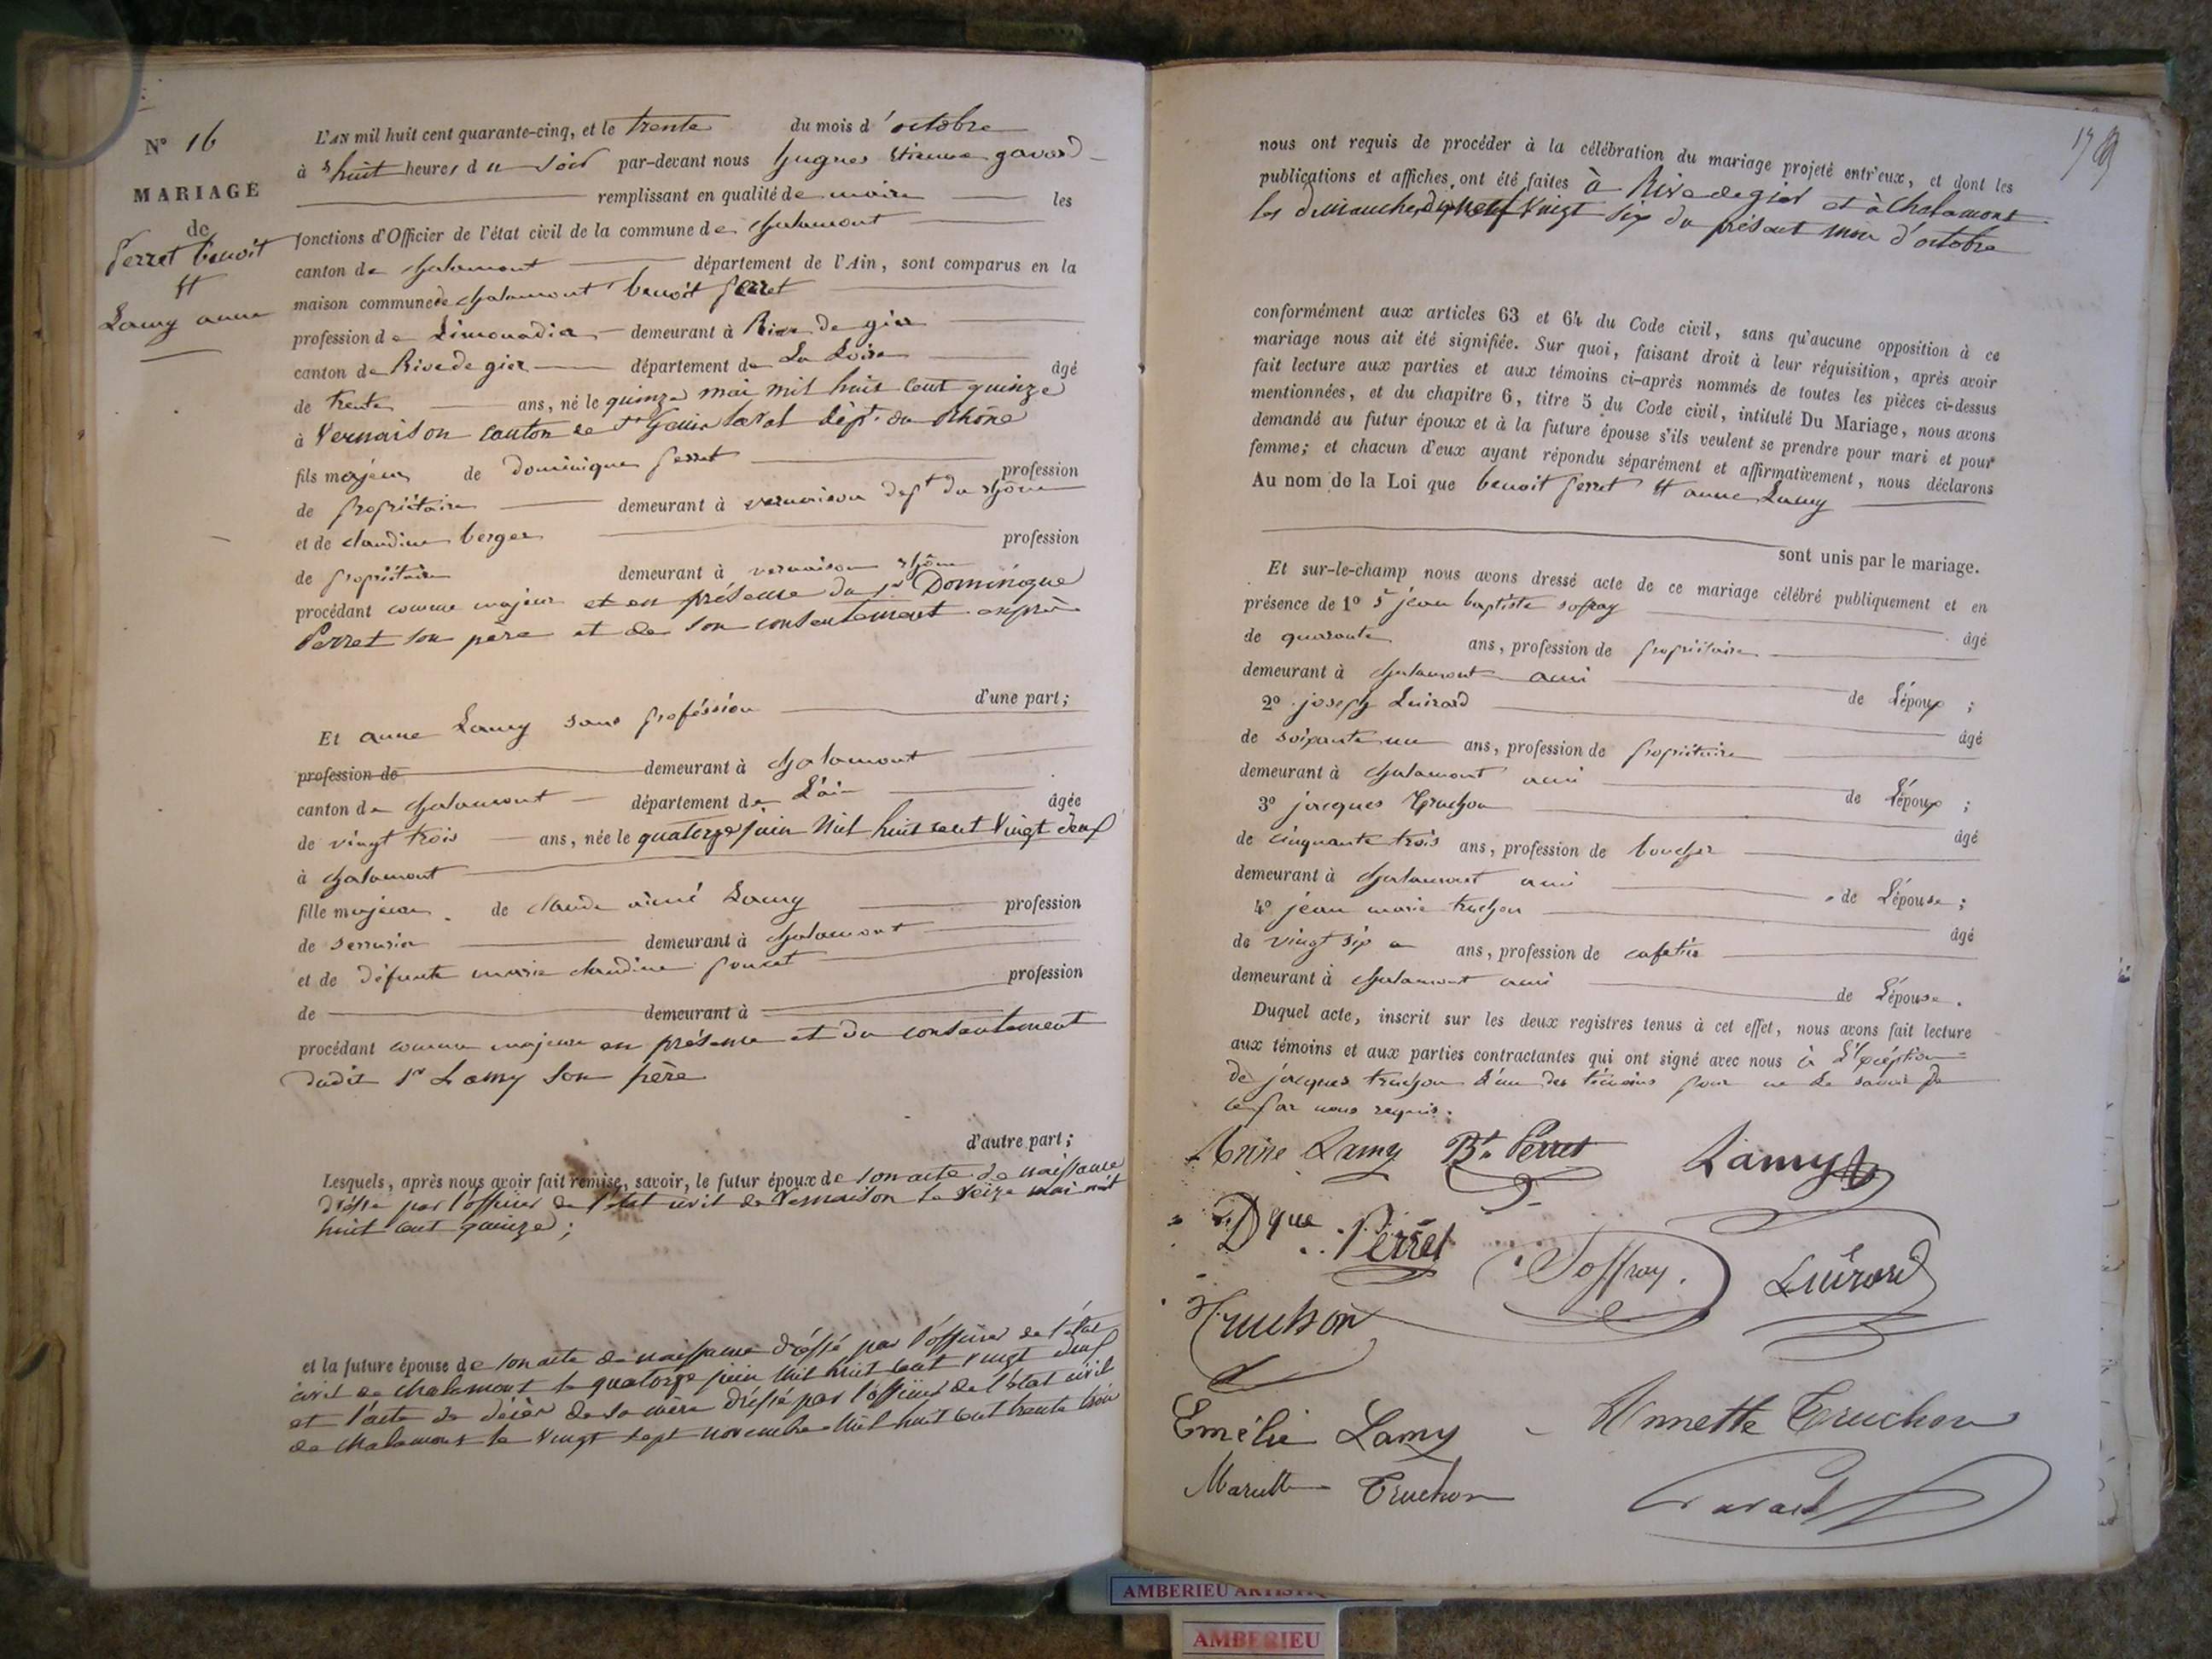 N° 16
MARIAGE
de
Perret benoit
et
Lamy anne
L'AN mil huit cent quarante-cinq, et le trente du mois d'octobre
à huit heures du soir par-devant nous hugues Etienne gavard
remplissant en qualité de maire les
fonctions d'Officier de l'état civil de la commune de chalamont
canton de chalamont département de l'Ain, sont comparus en la
maison commune de chalamont benoit perret
profession de Limonadier demeurant à Rive de gier
canton de Rive de gier département de La Loire âgé
de trente ans, né le quinze mai mil huit cent quinze
à Vernaison canton de St Genis Laval dépt. du Rhône
fils majeur de dominique perret profession
de propriétaire demeurant à vernaison dept du rhône
et de claudine berger profession
de propriétaire demeurant à vernaison rhône
procédant comme majeur et en présence du sr Dominique
Perret son père et de son consentement exprès
d'une part;
Et anne Lamy sans proféssion
profession de demeurant à chalamont
canton de chalamont département de L'ain âgée
de vingt trois ans, née le quatorze juin mil huit cent vingt deux
à chalamont
fille majeure de claude aimé Lamy profession
de serrurier demeurant à chalamont
et de défunte marie claudine poncet profession
de demeurant à
procédant comme majeure en présence et du consentement
dudit sr Lamy son père
d'autre part;
Lesquels, après nous avoir fait remise, savoir, le futur époux de son acte de naissance
dréssé par l'officier de l'état civil de Vernaison le seize mai mil
huit cent quinze;
et la future épouse de son acte de naissance dréssé par l'officier de l'état
civil de chalamont le quatorze juin mil huit cent vingt deux
et l'acte de décès de sa mère dréssé par l'officier de l'état civil
de chalamont le vingt sept novembre mil huit cent trente trois
nous ont requis de procéder à la célébration du mariage projeté entr'eux, et dont les
publications et affiches ont été faites à Rive de gier et à chalamont
les dimanches dix neuf Vingt six du présent mois d'octobre
conformément aux articles 63 et 64 du Code civil, sans qu'aucune opposition à ce
mariage nous ait été signifiée. Sur quoi, faisant droit à leur réquisition, après avoir
fait lecture aux parties et aux témoins ci-après nommés de toutes les pièces ci-dessus
mentionnées, et du chapitre 6, titre 5 du Code civil, intitulé Du Mariage, nous avons
demandé au futur époux et à la future épouse s'ils veulent se prendre pour mari et pour
femme; et chacun d'eux ayant répondu séparément et affirmativement, nous déclarons
Au nom de la Loi que benoit perret et anne Lamy
sont unis par le mariage.
Et sur-le-champ nous avons dressé acte de ce mariage célébré publiquement et en
présence de 1° sr jean baptiste soffray âgé
de quarante ans, profession de propriétaire
demeurant à chalamont ami de L'époux;
2° joseph Luirard âgé
de soixante un ans, profession de propriétaire
demeurant à chalamont ami de L'époux;
3° jacques Truchon âgé
de cinquante trois ans, profession de boucher
demeurant à chalamont ami de L'épouse;
4° jean marie truchon âgé
de vingt six ans, profession de cafetier
demeurant à chalamont ami de L'épouse.
Duquel acte, inscrit sur les deux registres tenus à cet effet, nous avons fait lecture
aux témoins et aux parties contractantes qui ont signé avec nous à L'exception
de jacques truchon L'un des témoins pour ne le savoir de
ce par nous requis.
Anne Lamy Bt Perret Lamy
Dque Perret Soffray. Luirard
Truchon
Emélie Lamy Annette Truchon
Mariette Truchon Gavard
AMBERIEU
AMBERIEU